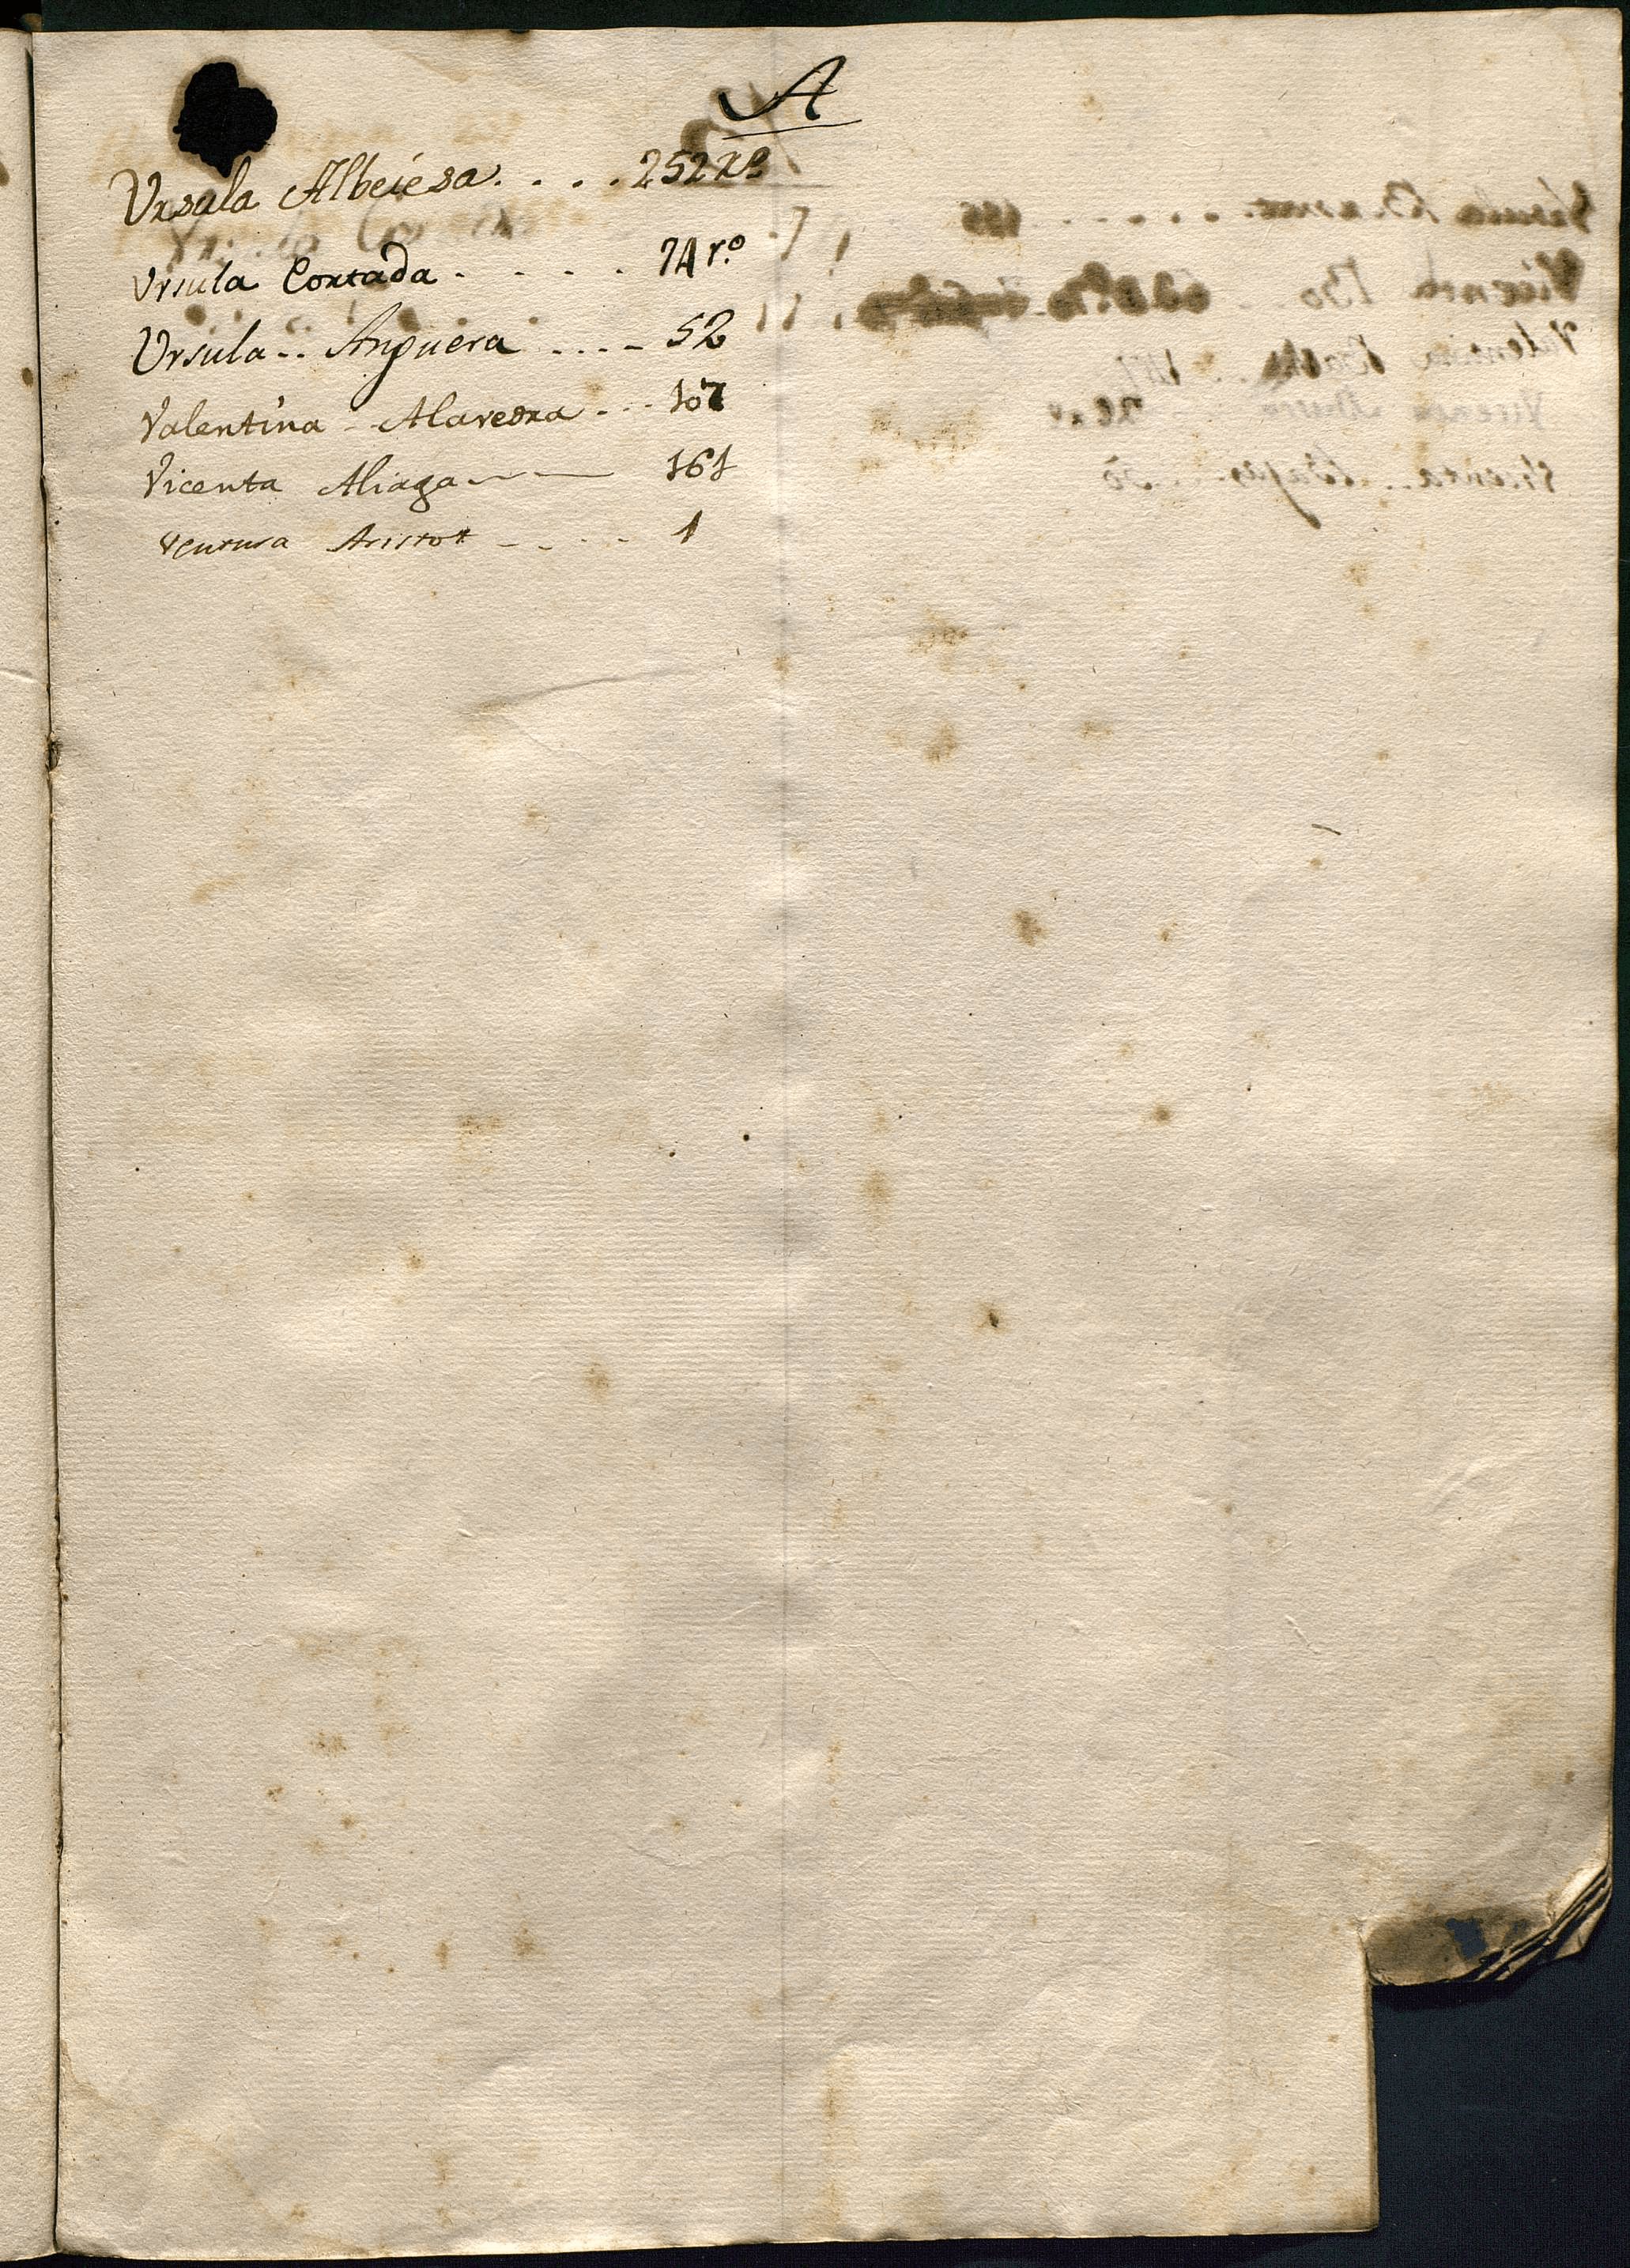 A
Ursula Albeiesa. . . . . 252 Rº
Ursula Cortada . . . . . 74 rº
Ursula .. Anguera .... 52
Valentina - Alavedra ... 107
Vicenta Aliaga 161
Ventura Aristot ..... 1